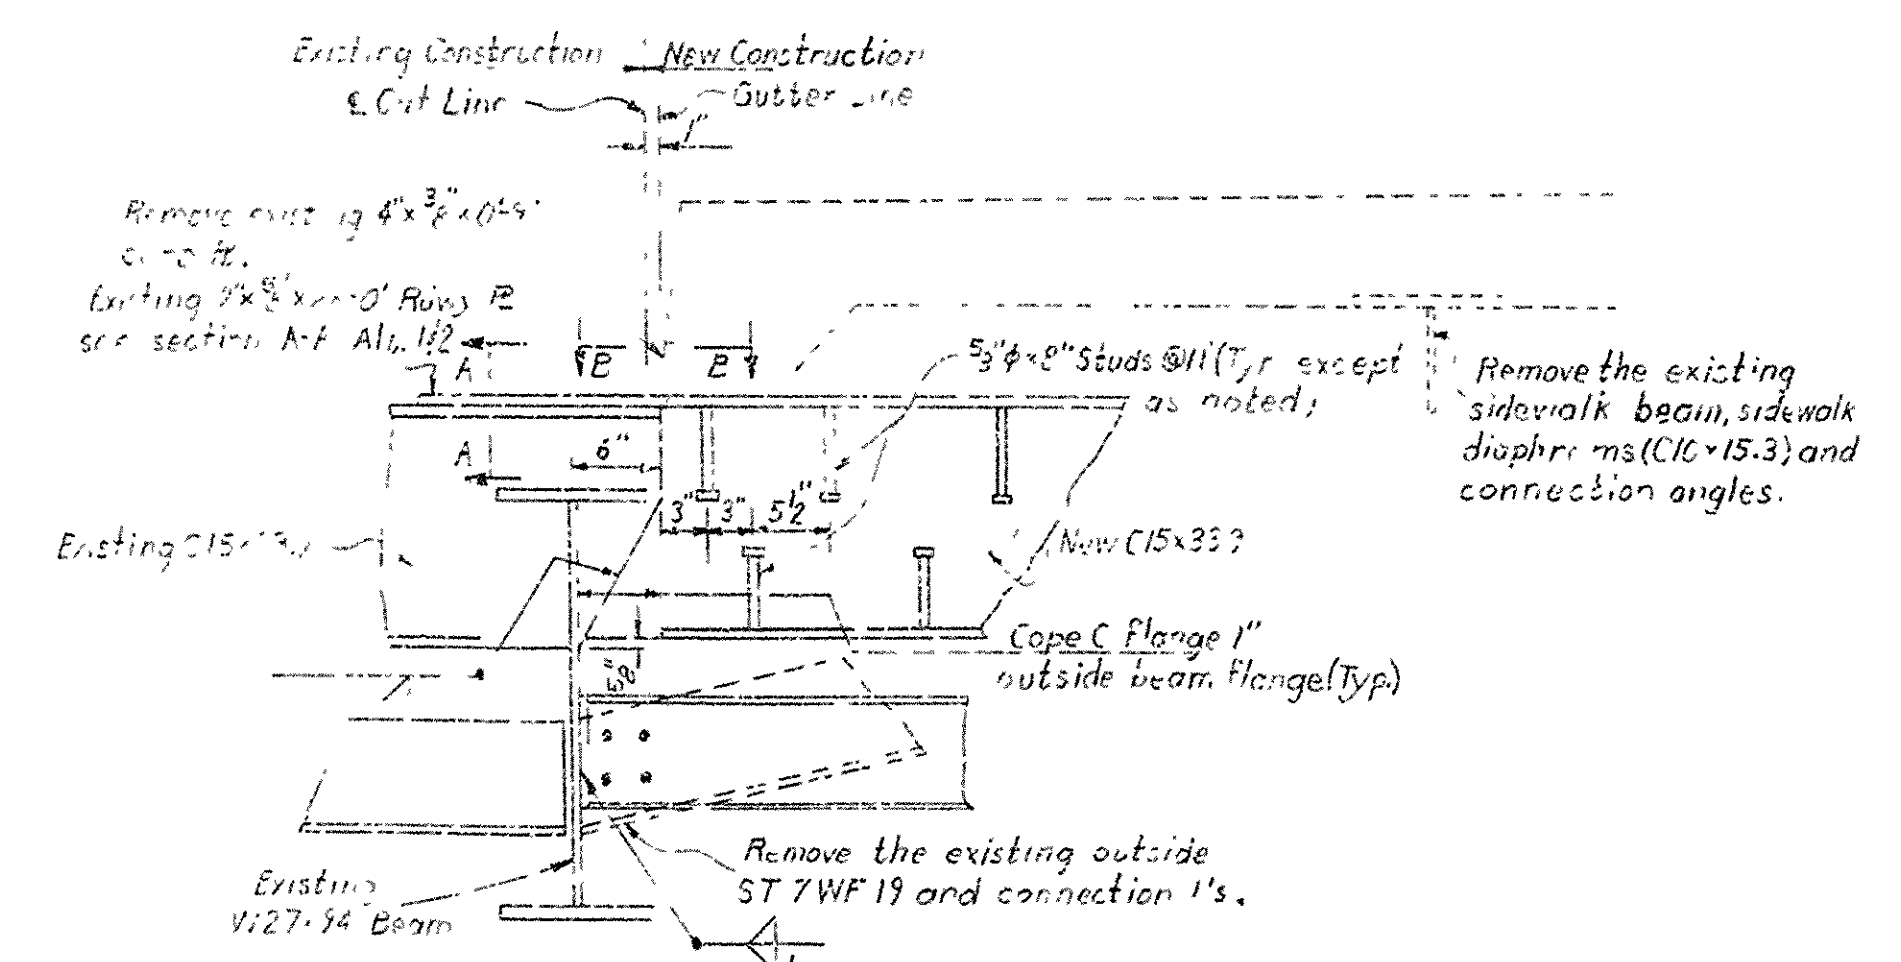 Existing Construction
New Construction
℄ Cut Line
Gutter Line
1"
Remove existing 4"x 3/8"x0'-
Existing x Riding ℞
see section A-A Alt. 1&2
A
B
B
5/8"φ×8" Studs @11"(Typ. except
as noted)
Remove the existing
sidewalk beam, sidewalk
diaphragms (C10×15.3) and
connection angles.
A
6"
3"
3"
5 1/2"
Existing C15×
New C15x33.9
Cope C flange 1"
outside beam flange(Typ.)
5/8"
Remove the existing outside
ST 7WF 19 and connection
Existing
27×94 Beam